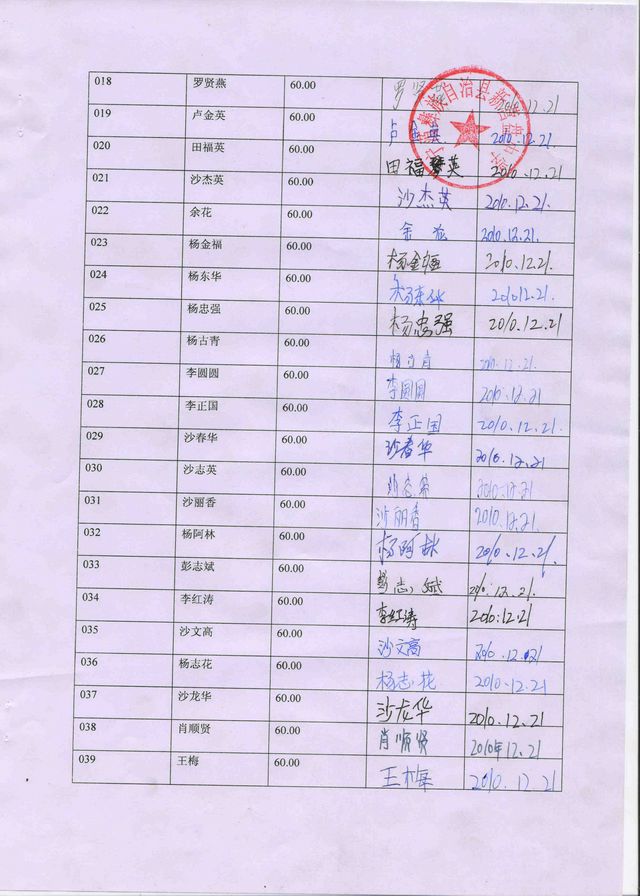 018 罗贤燕 60.00 罗贤燕 2010.12.21
019 卢金英 60.00 卢金英 2010.12.21
020 田福英 60.00 田福英 2010.12.21
021 沙杰英 60.00 沙杰英 2010.12.21.
022 余花 60.00 2010.12.21.
023 杨金福 60.00 杨金福 2010.12.21.
024 杨东华 60.00 杨东华 201012.21
025 杨忠强 60.00 杨忠强 2010.12.21
026 杨古青 60.00 杨古青 2010.12.21.
027 李圆圆 60.00 李圆圆 2010.12.21
028 李正国 60.00 李正国 2010.12.21
029 沙春华 60.00 沙春华 2010.12.21
030 沙志英 60.00 2010.12.21
031 沙丽香 60.00 沙丽香 2010.12.21
032 杨阿林 60.00 杨阿林 2010.12.21.
033 彭志斌 60.00 彭志斌 2010.12.21.
034 李红涛 60.00 李红涛 2010.12.21
035 沙文高 60.00 沙文高 2010.12.21
036 杨志花 60.00 杨志花 2010.12.21
037 沙龙华 60.00 沙龙华 2010.12.21
038 肖顺贤 60.00 肖顺贤 2010年12.21
039 王梅 60.00 王梅 2010.12.21
彝族自治县新